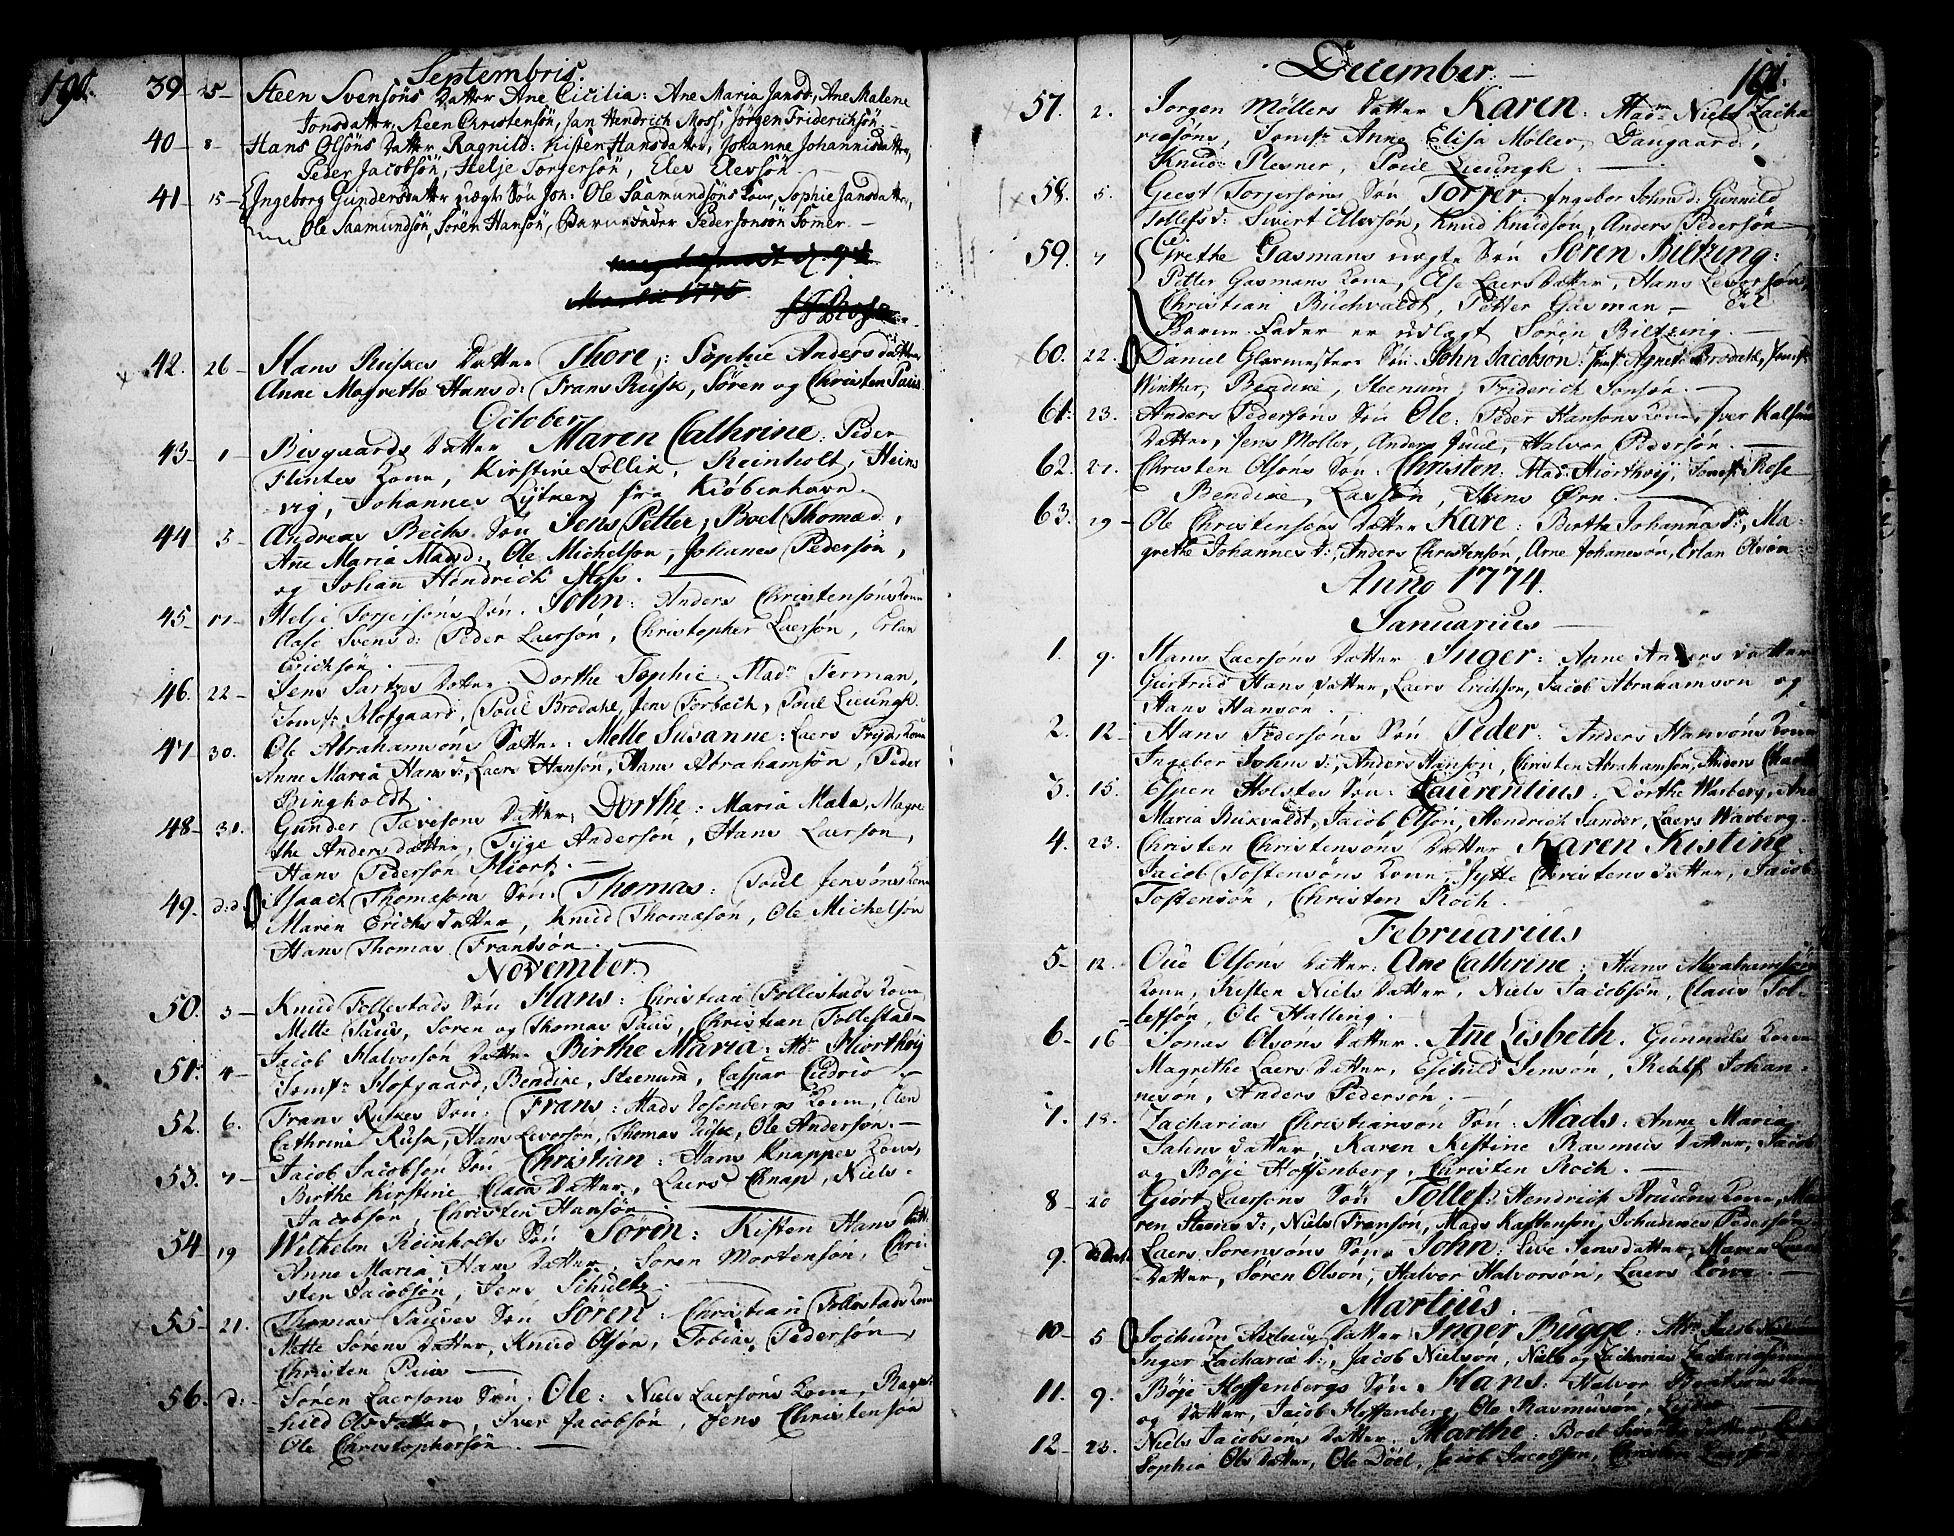 Septembris.
39 25 Steen Svensöns Datter Ane Cicilia: Ane Maria Jansd:, Ane Malene
Jonsdatter, Steen Christensön, Jan Hendrich Moss, Jörgen Friderichsön.
40 8 Hans Olsöns Datter Ragnild: Kisten Hansdatter, Johanne Johannisdatter,
Peder Jacobsön, Helje Torgersön, Elev Elevsön
41 15 Ingeborg Gundersdatter uægte Sön Joh: Ole Saamundsöns Kone, Sophie Jansdatter,
Ole Saamundsön, Sören Hansön, Barnefader Peder Jonsön
42. 26 Hans Ruskes Datter Thore: Sophie Andersdatter
Anne Magrethe Hansd: Frans Rusk, Sören og Christen Paus
October
43 1 Bisgaards Datter Maren Cathrine: Peder
Flintes Kone, Kirstine Lollik, Reinholt, Heins
vig, Johannes fra Kiöbenhavn.
44 3 Andreas Bechs Sön Jens Petter; Boel Thomæd.,
Ane Maria Madsd:, Ole Michelson, Johanes Pedersön,
og Johan Hendrich Moss.
45 17 Helje Torjersöns Sön. John: Anders Christensöns Kone
Aase Svensd: Peder Laersön, Christopher Laersön, Erlan
Erichsön
46. 22 Jens Datter Dorthe Sophie: Madm Ferman,
Jomfr Hofgaard, Poul Brodahl, Jens Forbech, Poul Lieungh
47 30. Ole Abrahamsöns Datter: Mette Susanne: Laers Kone
Anne Maria Hansd:, Laers Hansön, Hans Abrahamsön, Peder
Bingholdt.
48 31. Gunder Tavesöns Datter, Dorthe: Maria Mala, Magre
the Andersdatter, Tyge Andersön, Hans Laersön,
Hans Pedersön Hiort.
49. d:d: Isaach Thomasöns Sön. Thomas: Poul Jensöns Kone
Maren Erichsdatter, Knud Thomasön, Ole Michelsön
Hans Thomas Frantsön.
November
50. 3 Knud Follestads Sön Hans: Christian Follestads Kone
Mette Paus, Sören og Thomas Paus, Christian Follestad
51. 4 Jacob Halvorsön Datter Birthe Maria: Md: Hiorthöy
Jomfr Hofgaard, Bendixe, Steenum, Caspar
52. 6. Frans Ruskes Sön: Frans: Mads Kone, Elen
Cathrine Rusk, Hans Levorsön, Thomas Rusk, Ole Andersön.
53. 7 Jacob Jacobsön Sön Christian: Hans Knappes Kone,
Birthe Kirstine Claes Datter, Laers Chnap, Niels
Jacobsön, Christen Hansön
54 19 Wilhelm Reinholts Sön Sören: Kisten Hansdatt
Anne Maria Hans Datter, Sören Mortensön, Chri-
sten Jacobsön, Jens Schultz
55 21. Thomas Pauses Sön Sören: Christian Follestads Kone
Mette Sörens Datter, Knud Olsön, Tobias Pedersön,
Christen Paus
56. d: Sören Laersöns Sön: Ole: Niels Laersöns Kone, Ragn
hild Olsdatter, Iver Jacobsön, Jens Christensön
Ole Christophersön.
December.
101.
57. 2. Jörgen Möllers Datter Karen: Madm Niels Zacha
riesöns, Jomfr Anne Elisa Möller, Daugaard,
Knud Plesner, Poul Lieungh.
58. 5. Geest Torjersöns Sön Torjer: Ingebor Johnsd: Gunnild
Tollefsd: Sivert Olevsön, Knud Knudsön, Anders Pedersön
59. 7 Grethe Gasmans uægte Sön Sören Biltzing:
Petter Gasmans Kone, Else Laersdatter, Hans Levorsön,
Christian Buchvaldt, Petter Gasman
Barne-Fader er udlagt Sören Biltzing.
60. 22. Daniel Glarmesters Sön. John Jacobson: Jomf: Agnete Brodahl, Jomfr
Winther, Bendixe, Steenum, Friderich Jonsön.
61. 23. Anders Pedersöns Sön Ole: Peder Hansöns Kone,
Datter, Jens Möller, Anders Juul, Halvor Pedersön.
62. 27. Christen Olsöns Sön. Christen. Mad: Hiorthöy, Jomfr: Rose
Bendixe, Larsön, Hans Örn.
63. 29 Ole Christensöns Datter Kare: Birthe Johannesd:, Ma-
grethe Johannesd:, Anders Christensön, Arne Johanesön, Erlan Olsön
Anno 1774.
Januarius
1. 9. Hans Laersöns Datter Inger: Anne Anders datter
Giertrud Hansdatter, Laers Erichsön, Jacob Abrahamsön og
Hans Hanson.
2. 12 Hans Pedersöns Sön Peder: Anders Hansöns Kone
Ingebor Johnsd:, Anders Hanson, Christen Abrahamsön, Anders
3. 15. Espen Holstes Sön: Laurentius: Dorthe Warberg, Ane
Maria Bukvaldt, Jacob Olsön, Hendrich Sander, Laers Warberg.
4. 23. Christen Christensöns Datter Karen Kistine
Jacob Tostensöns Kone, Jytte Christensdatter, Jacob
Tostensön, Christen Roch.
Februarius
5 12. Oue Olsöns Datter: Ane Cathrine: Hans Abrahamsöns
Kone, Kisten Nielsdatter, Niels Jacobsön, Claus Tol-
lefsön, Ole Halling.
6 16 Jonas Olsöns Datter. Añe Lisbeth. Gunnuls Kone
Magrethe Laers Datter, Eschild Jensön, Johan-
nesön, Anders Pedersön.
7. 18. Zacharias Christiansön Sön: Mads: Anne Maria
Datter, Karen Kistine Rasmus Datter, Jacob
og Böje Hoffenberg, Christen Roch.
8 20 Giört Laersöns Sön Tollef: Hendrich Kone, Ma
ren Steensd:, Niels Fransön, Mads Karstensön, Johannes Pedersön
9. Laers Sörensöns Sön. John: Live Jensdatter, Maren Laers
Datter, Sören Olsön, Halvor Halvorsön, Laers
Martius.
10 5 Jochum Datter Inger Bugge: Mdm Jacob
Inger Zachariæ d:, Jacob Nielsön, Niels og Zacharias
11. 9. Böje Hoffenbergs Sön. Hans: Halvor Kone
og Datter, Jacob Hoffenberg, Ole Rasmusön,
12 23. Niels Jacobsöns Datter. Marthe: Boel datter,
Sophia Olsdatter, Ole Döel, Jacob Jacobsön, Christen